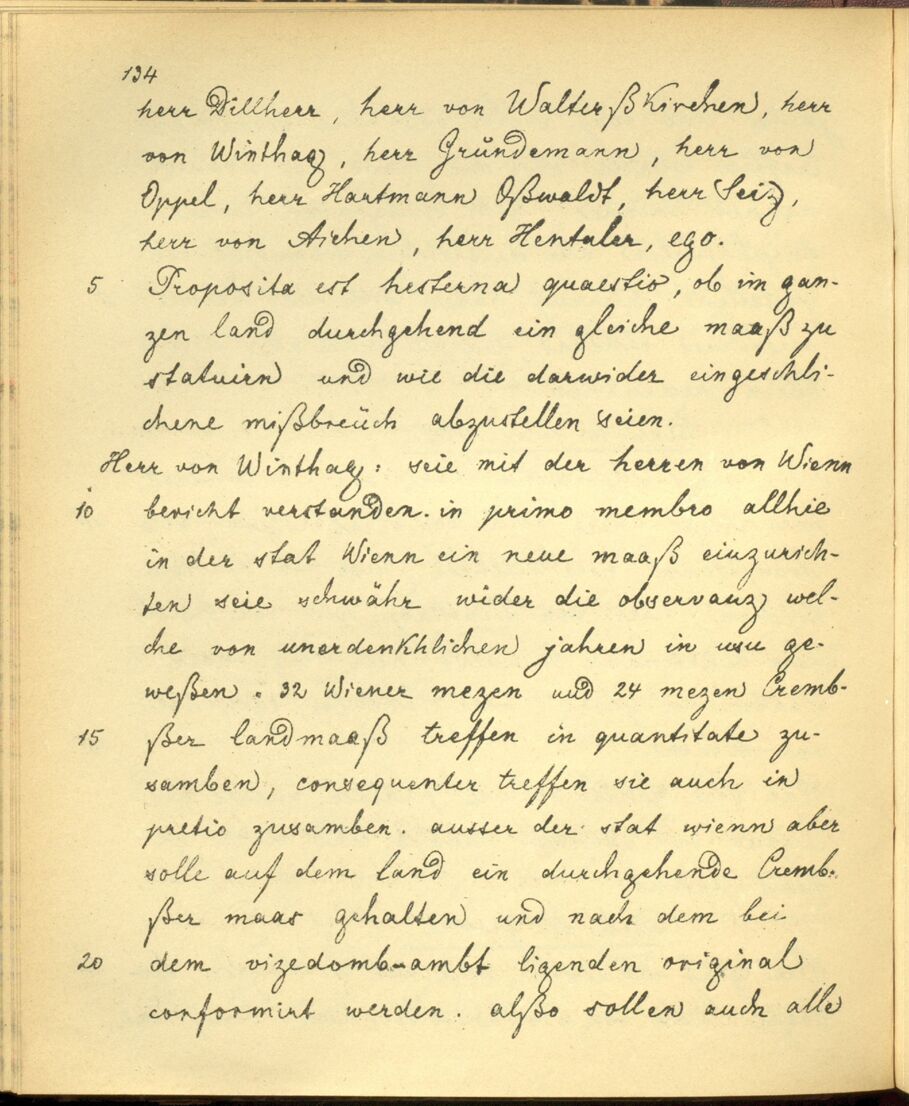 134
herr Dillherr, herr von Walterßkirchen, herr
von Winthag, herr Gründemann, herr von
Oppel, herr Hartmann Oßwaldt, herr Seiz,
herr von Aichen, herr Hentaler, ego.
5 Proposita est hesterna quaestio, ob im gan-
zen land durchgehend ein gleiche maaß zu
statuirn und wie die darwider eingeschli-
chene mißbreüch abzustellen seien.
Herr von Winthag: seie mit der herren von Wienn
10 bericht verstanden. in primo membro allhie
in der stat Wienn ein neue maaß einzurich-
ten seie schwähr wider die observanz wel-
che von unerdenkhlichen jahren in usu ge-
weßen. 32 Wiener mezen und 24 mezen Cremb-
15 ßer landmaaß treffen in quantitate zu-
samben, consequenter treffen sie auch in
pretio zusamben. ausser der stat wienn aber
solle auf dem land ein durchgehende Cremb-
ßer maas gehalten und nach dem bei
20 dem vizedomb-ambt ligenden original
conformirt werden. alßo sollen auch alle